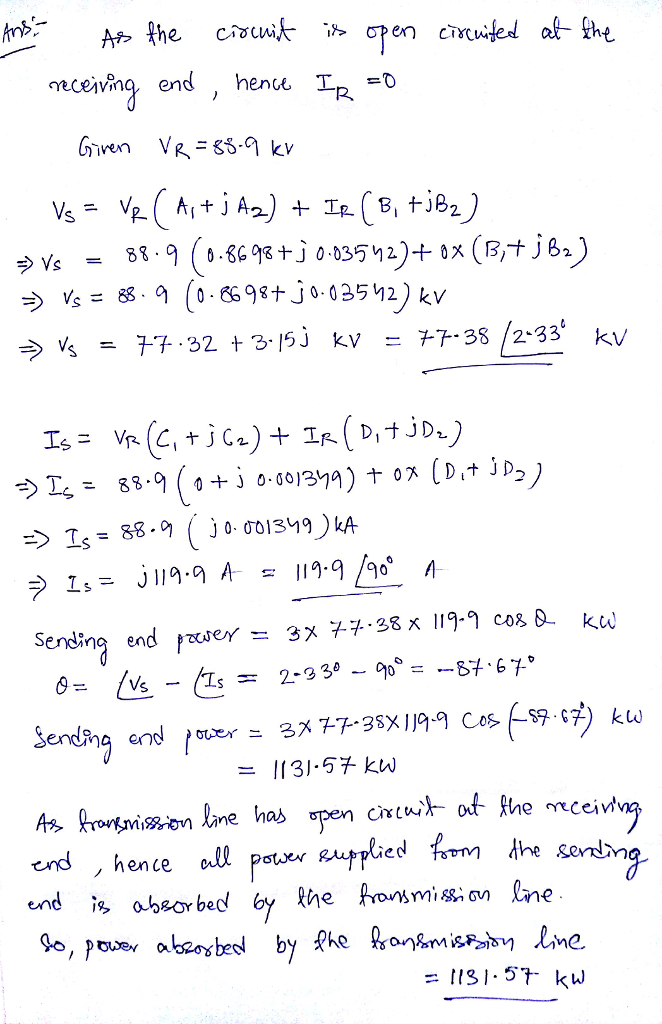 Ans:- As the circuit is open circuited at the
receiving end, hence I_R = 0
Given V_R = 88.9 kV
V_S = V_R (A_1 + j A_2) + I_R (B_1 + j B_2)
⇒ V_S = 88.9 (0.8698 + j 0.03542) + 0x (B_1 + j B_2)
⇒ V_S = 88.9 (0.8698 + j 0.03542) kV
⇒ V_S = 77.32 + 3.15j kV = 77.38 ∠2.33° kV
I_S = V_R (C_1 + j C_2) + I_R (D_1 + j D_2)
⇒ I_S = 88.9 (0 + j 0.001349) + 0x (D_1 + j D_2)
⇒ I_S = 88.9 (j 0.001349) kA
⇒ I_S = j119.9 A = 119.9 ∠90° A
Sending end power = 3 x 77.38 x 119.9 cos θ kW
θ = ∠V_S - ∠I_S = 2.33° - 90° = -87.67°
Sending end power = 3 x 77.38 x 119.9 cos (-87.67°) kW
= 1131.57 kW
As transmission line has open circuit at the receiving
end, hence all power supplied from the sending
end is absorbed by the transmission line.
So, power absorbed by the transmission line
= 1131.57 kW